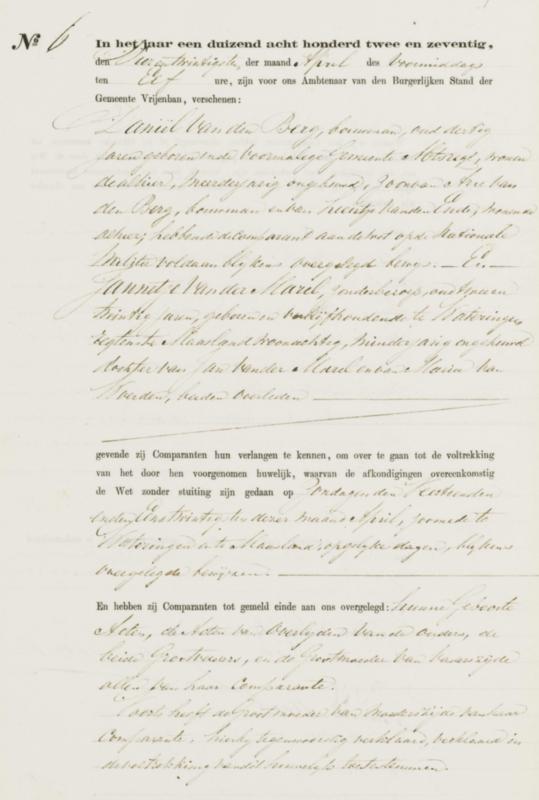 No. 6 In het jaar een duizend acht honderd twee en zeventig,
den Vier en twintigsten der maand April des voormiddags
ten Elf ure, zijn voor ons Ambtenaar van den Burgerlijken Stand der
Gemeente Vrijenban, verschenen:
Daniël van den Berg, bouwman, oud dertig
jaren geboren in de voormalige Gemeente Abtsregt, wonen
de alhier, meerderjarig ongehuwd, Zoon van Arie van
den Berg, bouwman en van Neeltje van den Ende, wonende
alhier; hebbende de comparant aan de wet op de Nationale
Militie voldaan blijkens overgelegd bewijs. — En —
Jannetje van der Marel, zonder beroep, oud
twintig jaren, geboren en verblijfhoudende te Wateringen
legtenste Maasland woonachtig, minderjarig ongehuwd
dochter van Jan van der Marel en van Maria van
Woerden, beiden overleden
gevende zij Comparanten hun verlangen te kennen, om over te gaan tot de voltrekking
van het door hen voorgenomen huwelijk, waarvan de afkondigingen overeenkomstig
de Wet zonder stuiting zijn gedaan op Zondagen den Veertienden
en den Een twintigsten dezer maand April, zoomede te
Wateringen en te Maasland op gelijke dagen, blijkens
overgelegde bewijzen.
En hebben zij Comparanten tot gemeld einde aan ons overgelegd: hunne Geboorte
Acten, de Acten van overlijden van de ouders, de
beide Grootvaders, en de Grootmoeder van vaderszijde
allen van haar Comparante.
Voorts heeft de Grootmoeder van moederszijde van haar
Comparante, hierbij tegenwoordig verklaard, in
de voltrekking van dit huwelijk toe te stemmen